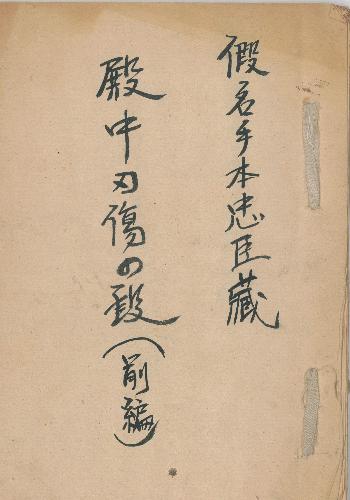 假名手本忠臣藏
殿中刃傷の段(前編)